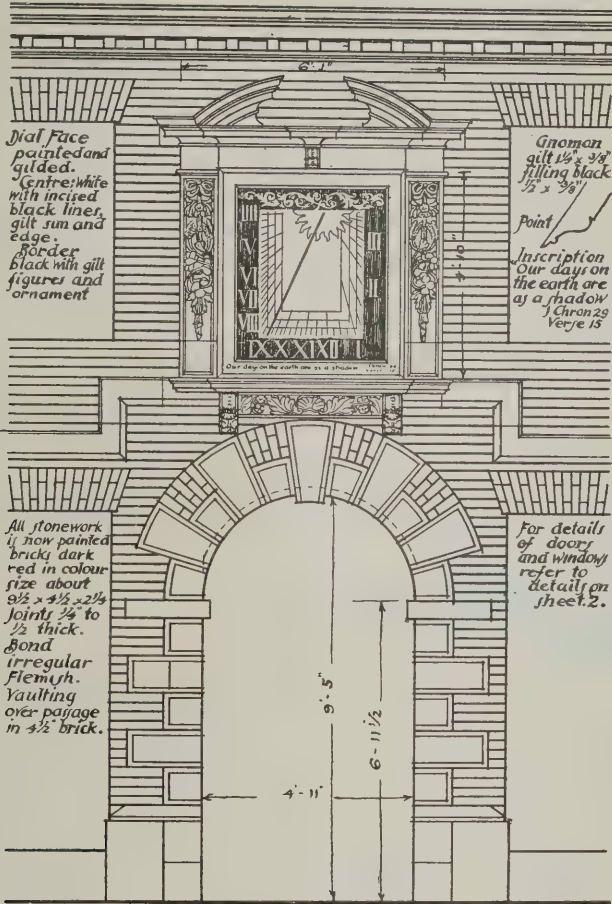 6'-1"
Dial Face
painted and
gilded.
Centre: white
with incised
black lines,
gilt sun and
edge.
Border
black with gilt
figures and
ornament
Gnomon
gilt 1¼" x ⅜"
filling black
½" x ⅜"
Point
Inscription
"Our days on
the earth are
as a shadow
1 Chron 29
Verse 15
IIII
V
VI
VII
VIII
IX X XI XII I
II
III
Our days on the earth are as a shadow
All stonework
is now painted
bricks dark
red in colour
size about
8½ x 4½ x 2¼
Joints ¼" to
½ thick.
Bond
irregular
Flemish.
Vaulting
over passage
in 4½" brick.
For details
of doors
and windows
refer to
details on
sheet.2.
9'-5"
6'-11½
4'-11"